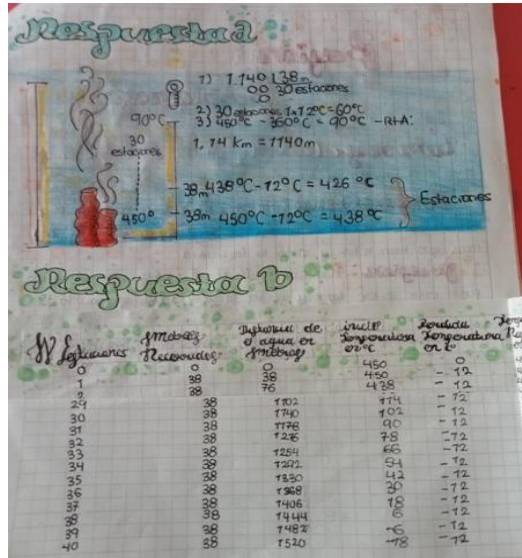 Respuesta a
1) 1.140 L38m
00 30 estaciones
0
2) 30 estaciones 1x12°C = 60°C
3) 450°C - 360°C = 90°C - RtA:
90°C
30
estaciones
1,14 km = 1140m
38m 438°C - 12°C = 426 °C
Estaciones
450°
38m 450°C - 12°C = 438 °C
Respuesta b
Nº Estaciones
metros Recorridos
de agua en metros
inicio Temperatura en °C
Perdida Temperatura en
0 0 0 450 0
1 38 38 450 - 12
2 38 76 438 - 12
29 38 1102 114 - 12
30 38 1140 102 - 12
31 38 1178 90 - 12
32 38 1216 78 - 12
33 38 1254 66 - 12
34 38 1292 54 - 12
35 38 1330 42 - 12
36 38 1368 30 - 12
37 38 1406 18 - 12
38 38 1444 6 - 12
39 38 1482 -6 - 12
40 38 1520 -18 - 12